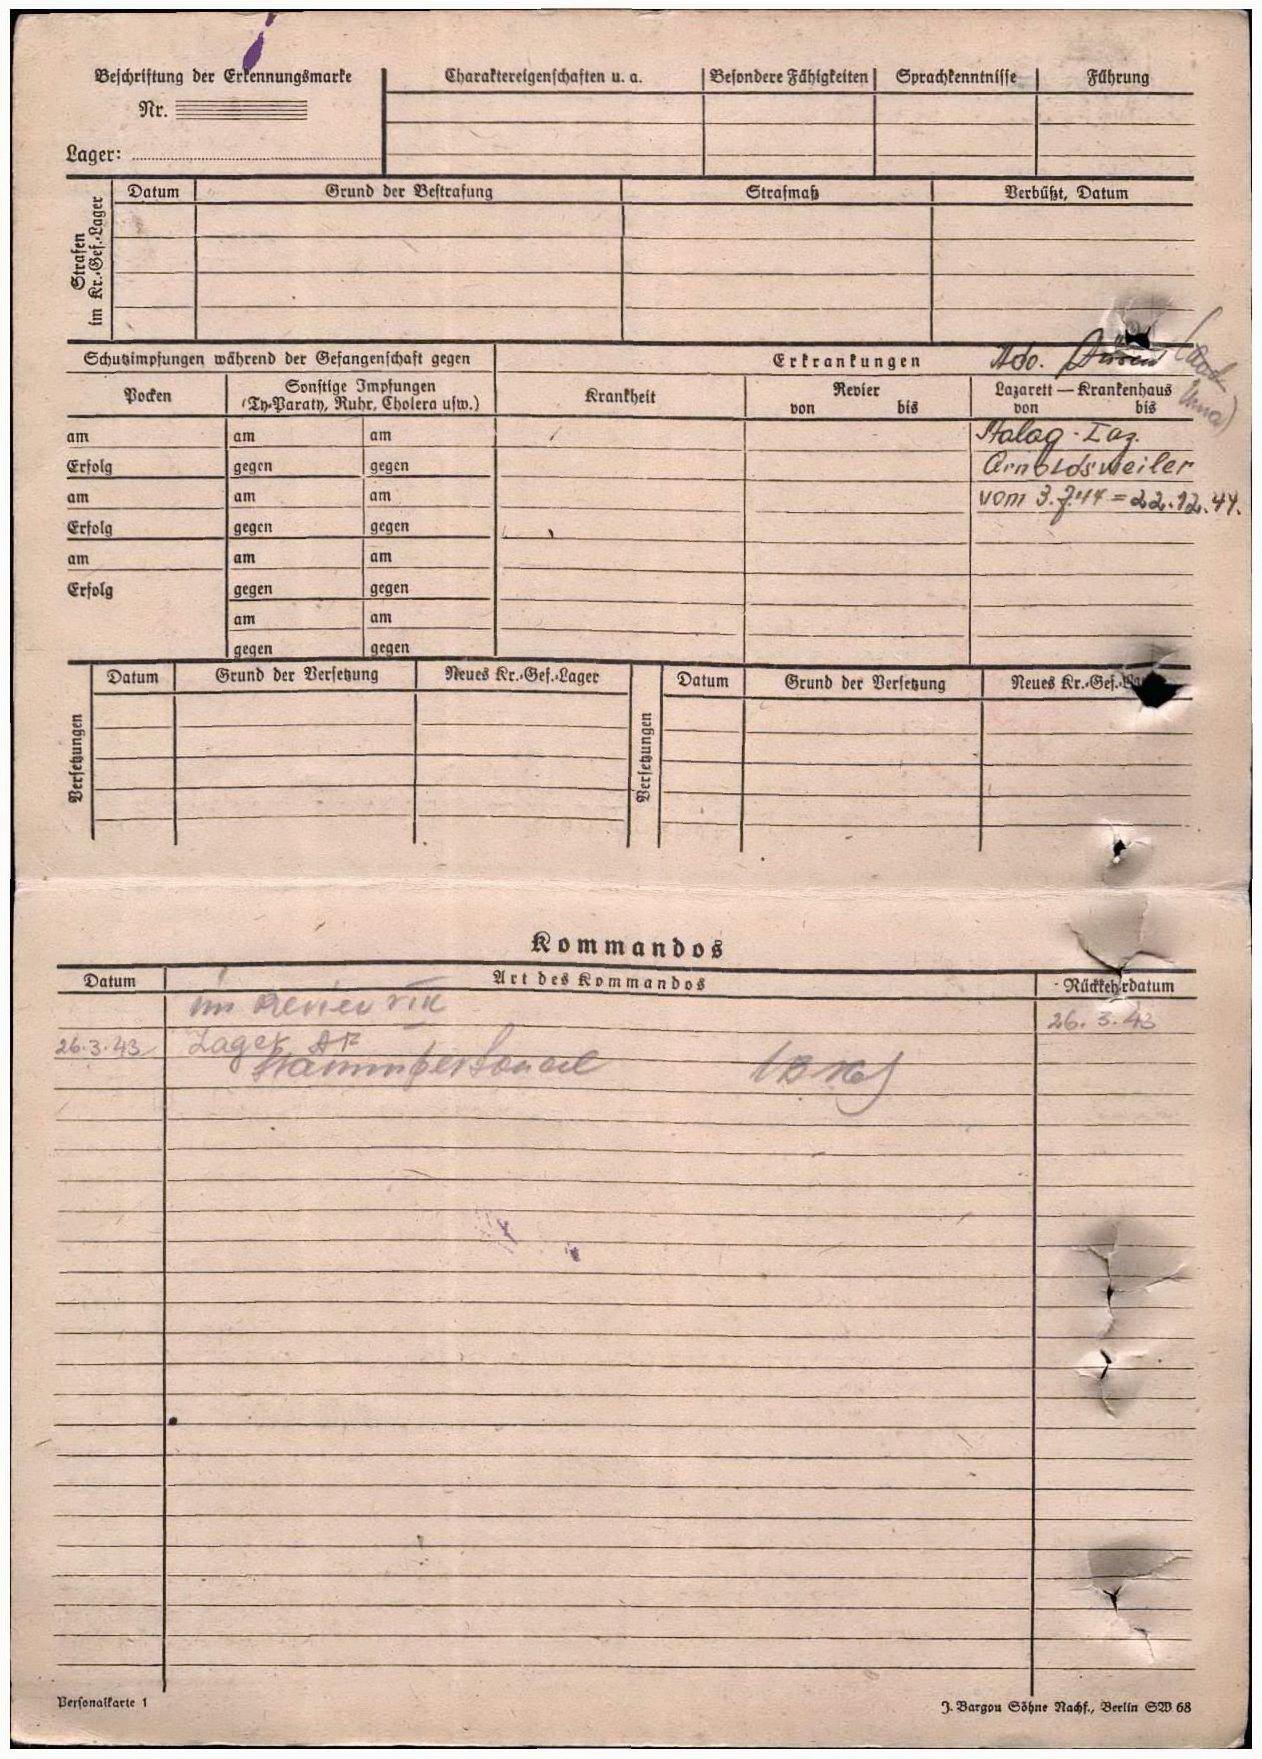 Beschriftung der Erkennungsmarke
Nr.
Lager:
Charaktereigenschaften u. a.
Besondere Fähigkeiten
Sprachkenntnisse
Führung
Strafen
im Kr.-Gef.-Lager
Datum
Grund der Bestrafung
Strafmaß
Verbüßt, Datum
Schutzimpfungen während der Gefangenschaft gegen
Erkrankungen
Pocken
Sonstige Impfungen
(Ty-Paraty, Ruhr, Cholera usw.)
Krankheit
Revier
von bis
Lazarett — Krankenhaus
von bis
am am am
Stalag-Laz.
Erfolg gegen gegen
Arnoldsweiler
am am am
vom 3.7.44 = 22.12.44.
Erfolg gegen gegen
am am am
Erfolg gegen gegen
am am
gegen gegen
Versetzungen
Datum
Grund der Versetzung
Neues Kr.-Gef.-Lager
Versetzungen
Datum
Grund der Versetzung
Neues Kr.-Gef.-
Kommandos
Datum
Art des Kommandos
Rückkehrdatum
im Revier
26. 3. 43
26.3.43 Lager
Stammpersonal
Personalkarte 1
J. Bargou Söhne Nachf., Berlin SW 68